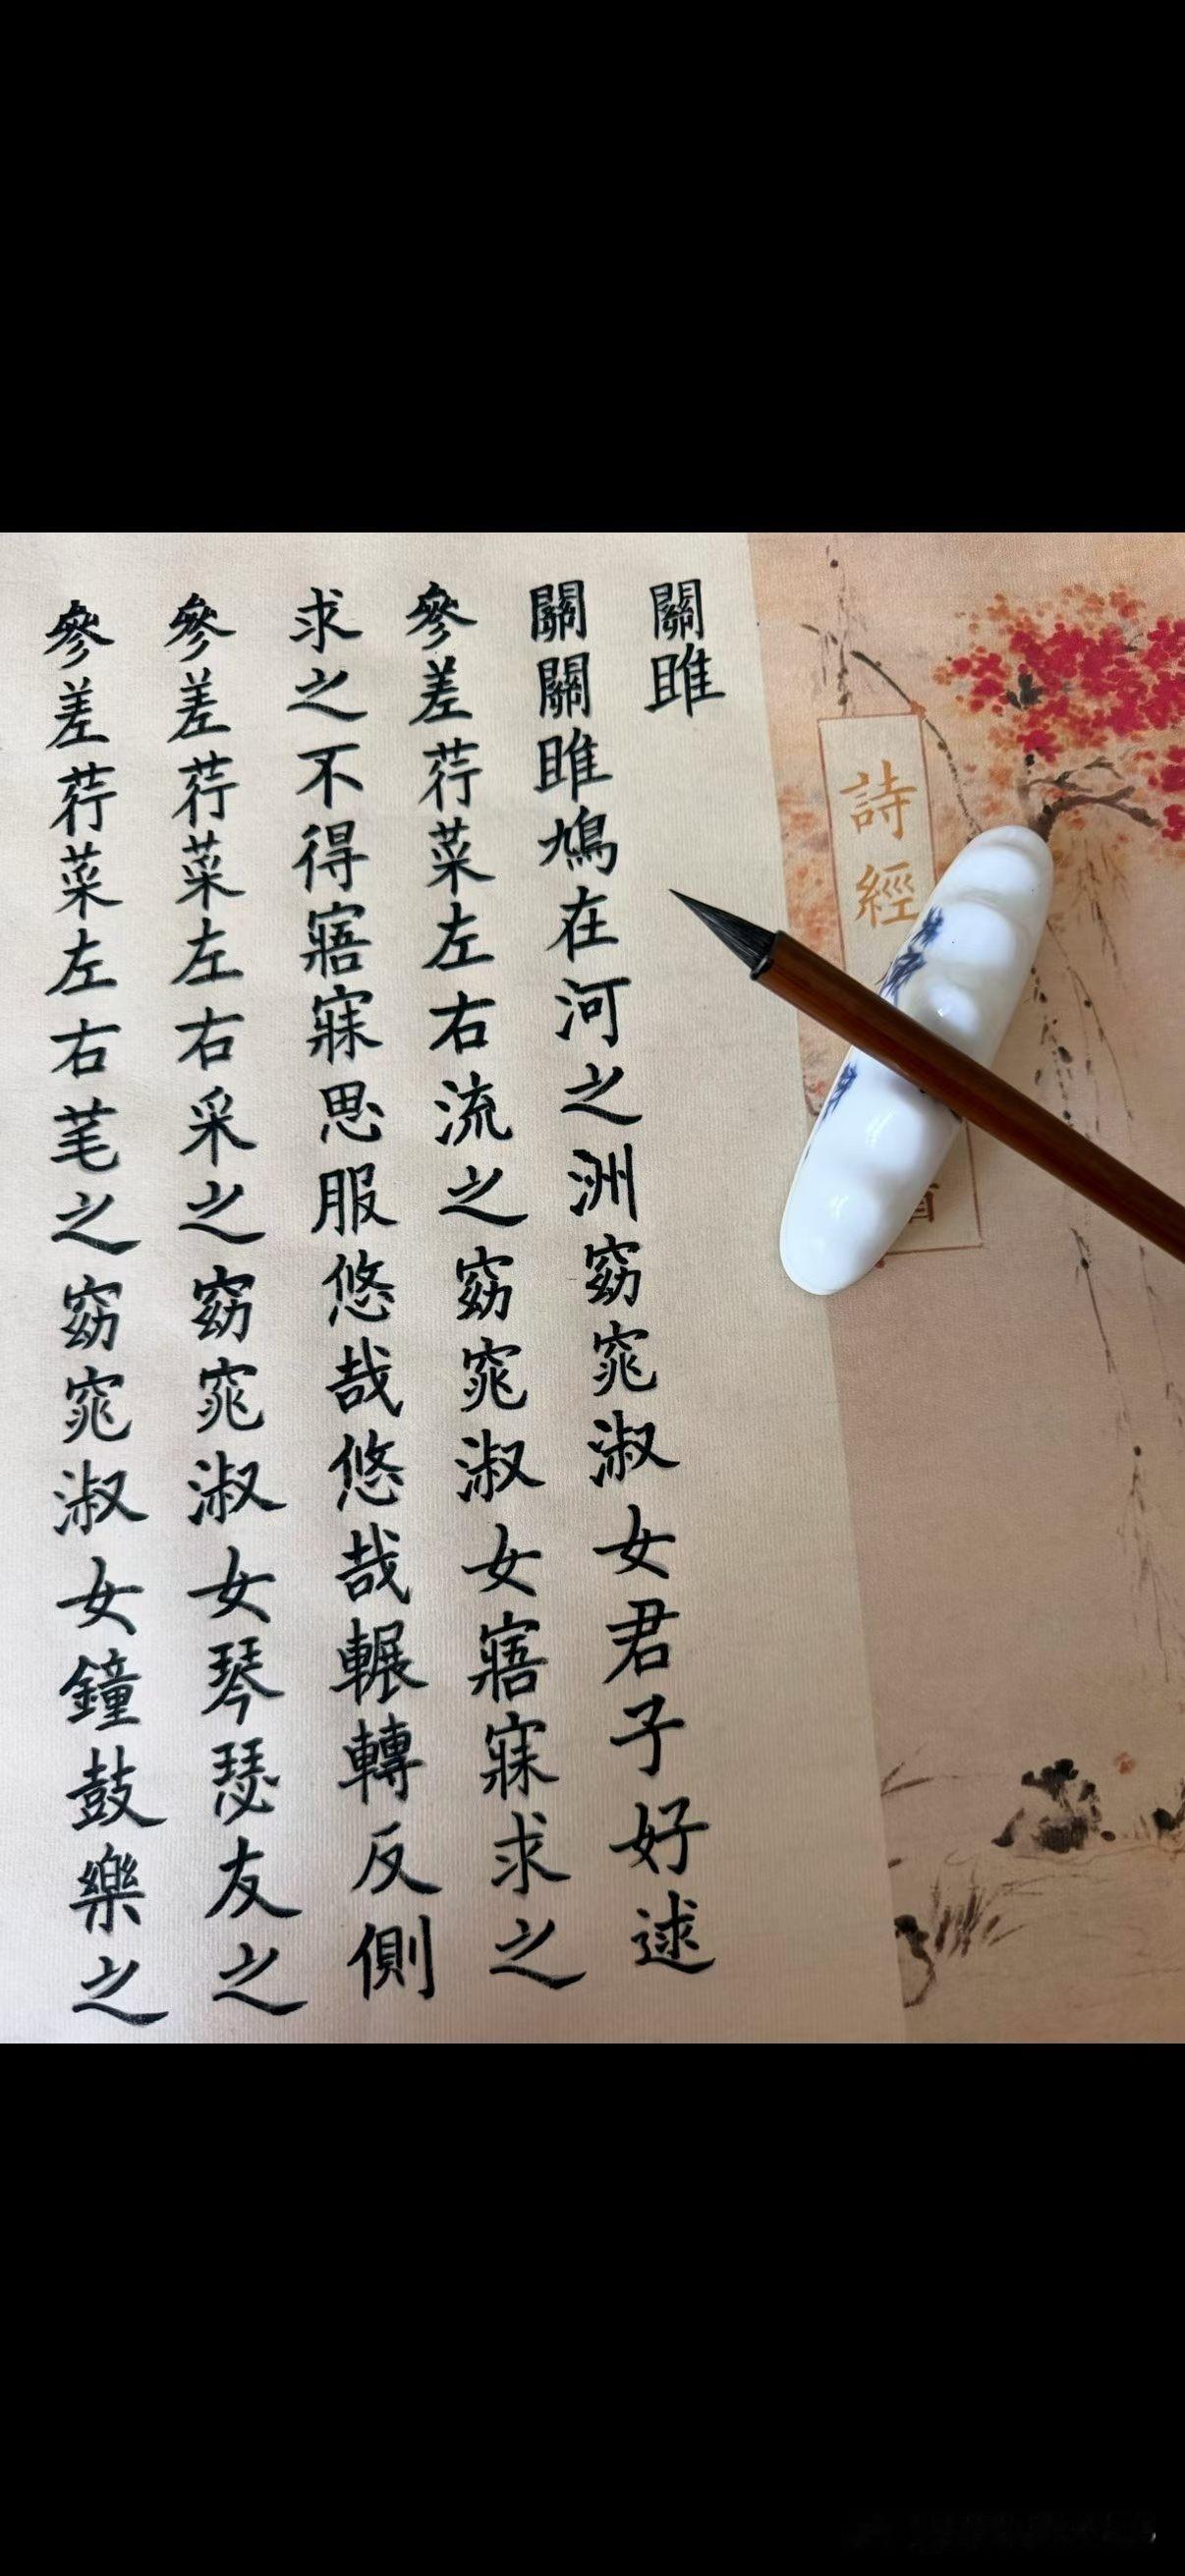 詩經
關雎
關關雎鳩在河之洲窈窕淑女君子好逑
參差荇菜左右流之窈窕淑女寤寐求之
求之不得寤寐思服悠哉悠哉輾轉反側
參差荇菜左右采之窈窕淑女琴瑟友之
參差荇菜左右芼之窈窕淑女鐘鼓樂之